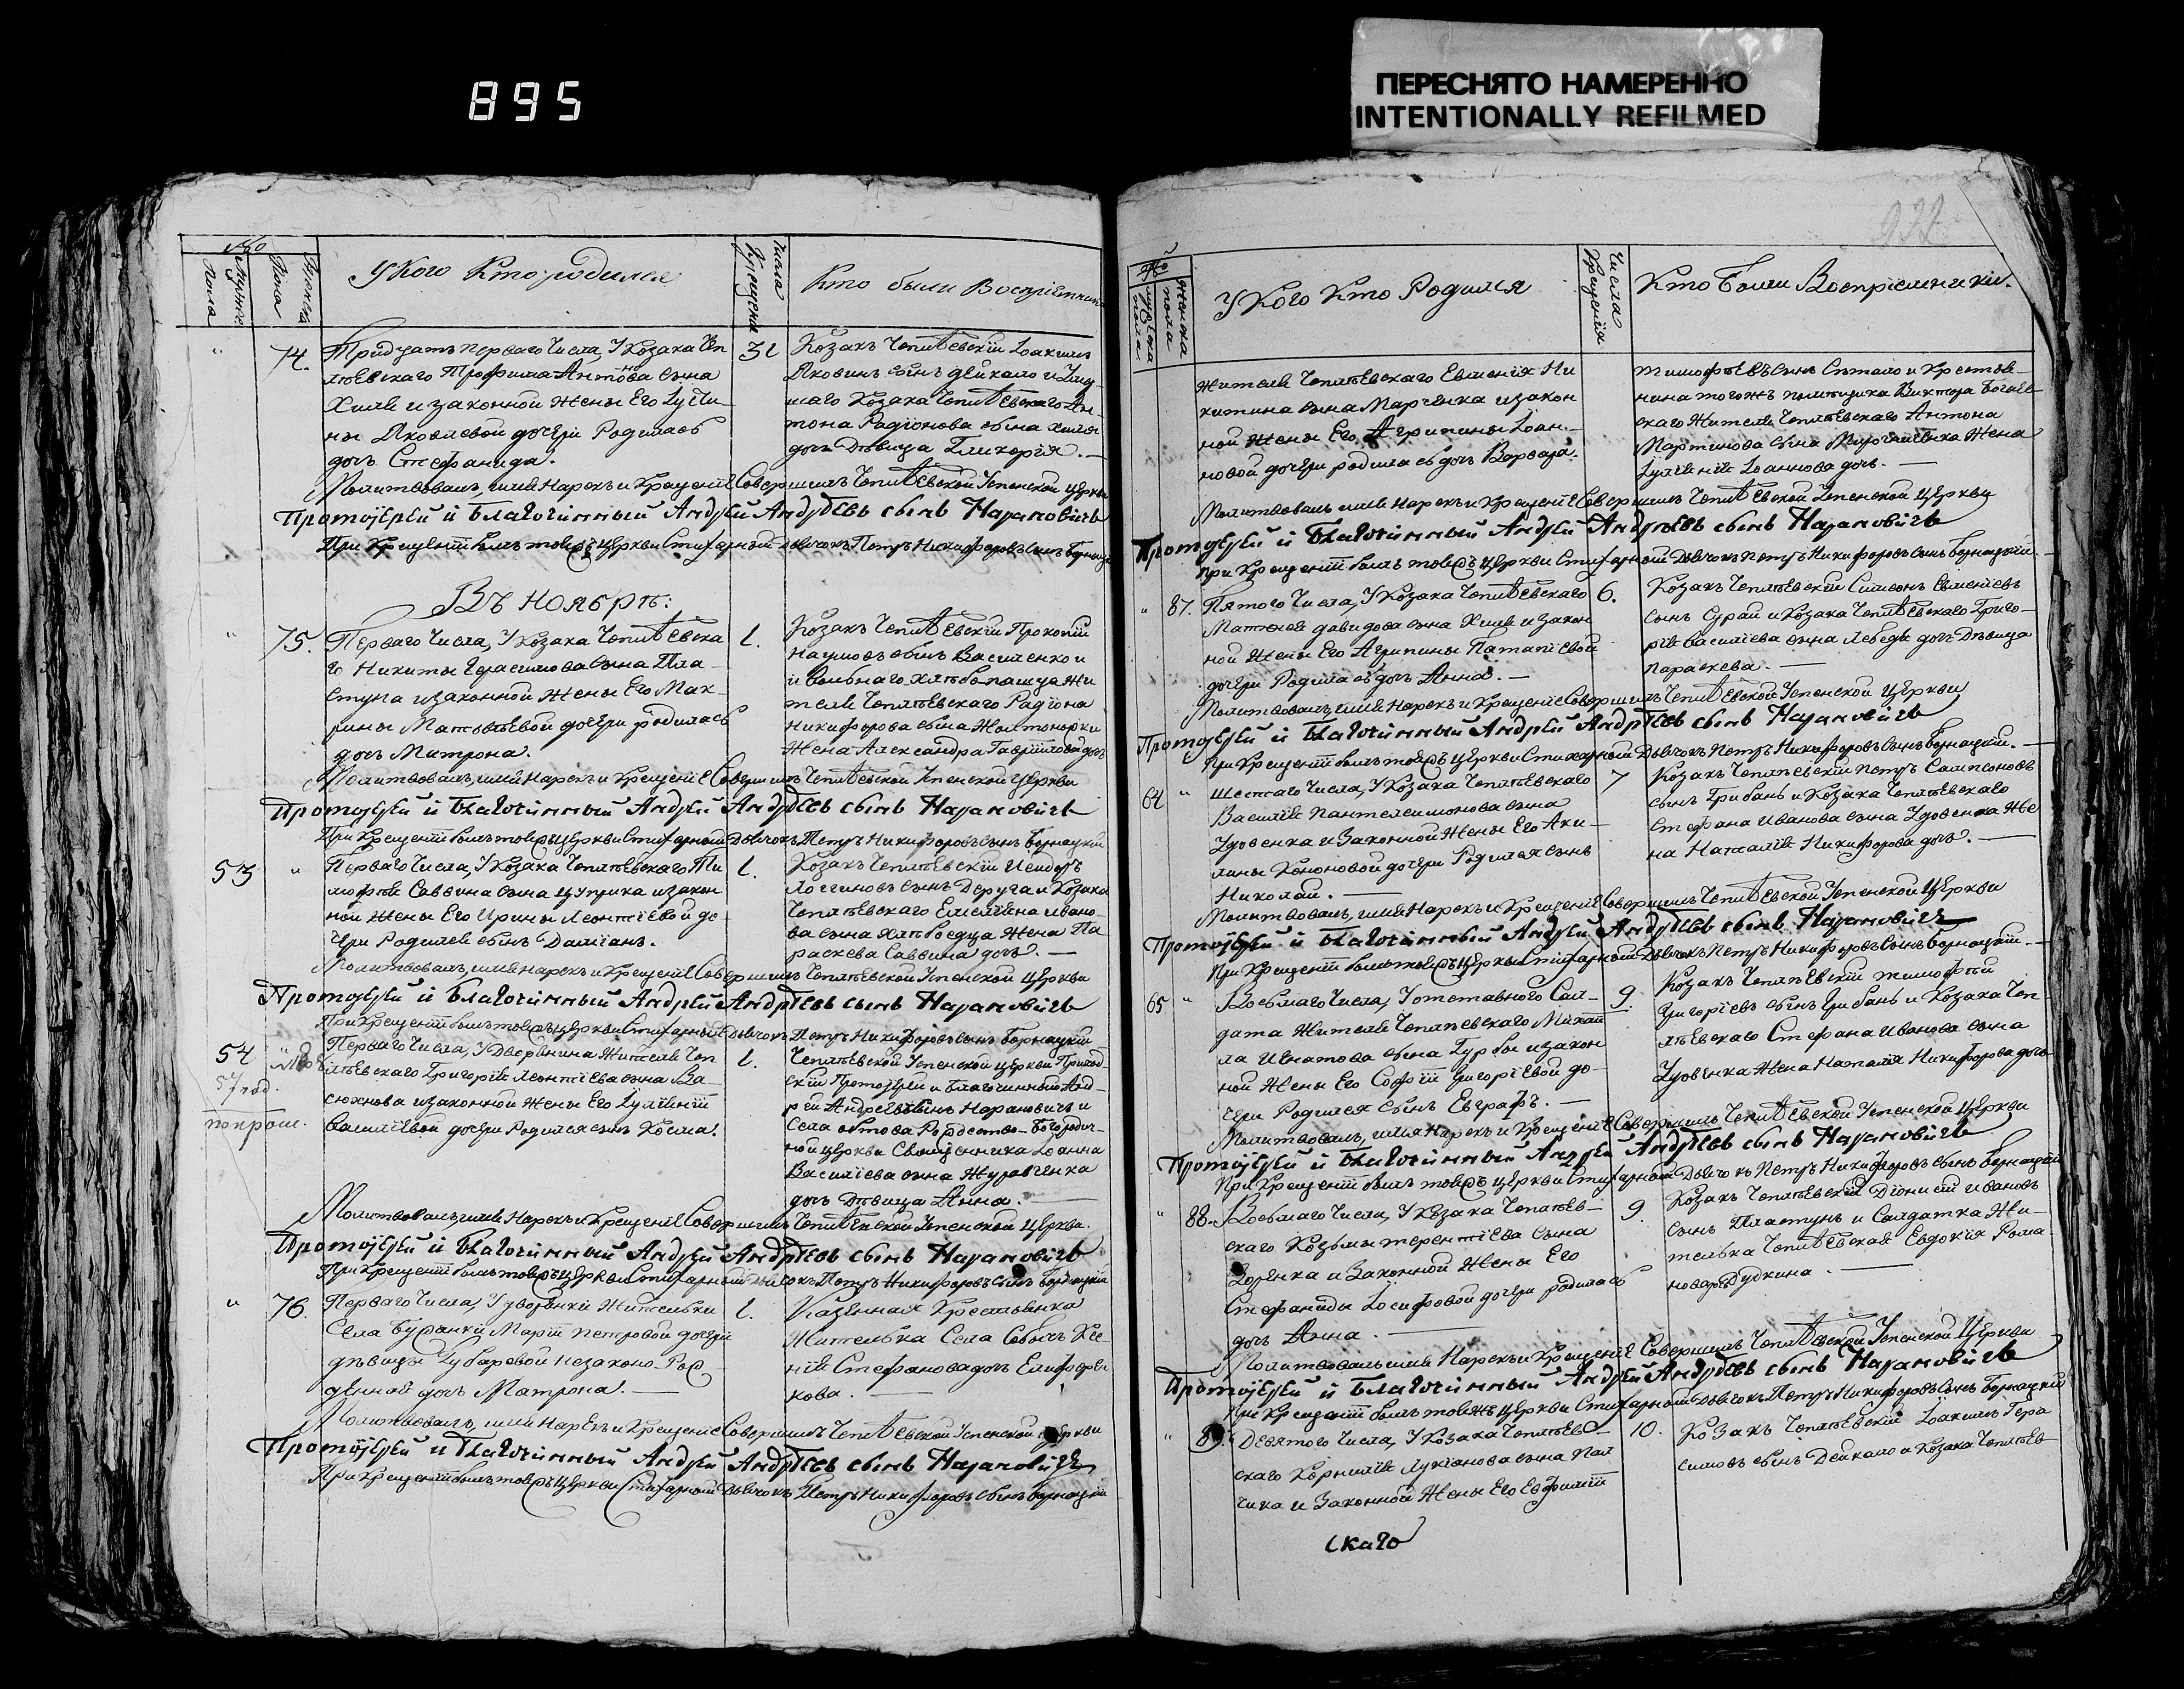 895
ПЕРЕСНЯТО НАМЕРЕННО
INTENTIONALLY REFILMED
932
№
Мужеска Пола
Женска Пола
У Кого Кто родился
Числа Крещения
Кто были Воспріемники
74.
Тридцать перваго Числа, У Козака Чеп
лѣевскаго Трофима Антонова сына
Хиля и законной жены Его
ны Яковлевой дочери Родилась
дочь Стефанида.
31
Козакъ Чеплѣевскій Іоакимъ
Яковинъ сынъ Дейкало и
маго Козака Чеплѣевскаго Ан-
тона Радіонова сына Хиля
дочь Дѣвица Гликерія.
Молитвовалъ, имя Нарекъ и Крещеніе Совершилъ Чеплѣевской Успенской Церкви
Протоіерей и Благочинный Андрей Андрѣевъ сынъ Нарановичъ
При Крещеніи былъ тоейже Церкви Стихарный Дьячокъ Петръ Никифоровъ сынъ Борнацкій
Въ Ноябрѣ:
75.
Перваго Числа, У Козака Чеплѣевска
го Никиты Герасимова сына Пла-
стуна и законной жены Его Мак-
рины Матвѣевой дочери родилась
дочь Матрона.
1.
Козакъ Чеплѣевскій Прокопій
Наумовъ сынъ Василенко и
и вольнаго хлѣбопашца жи
теля Чеплѣевскаго Радіона
Никифорова сына Желтоножки
Жена Александра Гавріилова дочь
Молитвовалъ, имя Нарекъ и Крещеніе Совершилъ Чеплѣевской Успенской Церкви
Протоіерей и Благочинный Андрей Андрѣевъ сынъ Нарановичъ
При Крещеніи былъ тоейже Церкви Стихарный Дьячокъ Петръ Никифоровъ сынъ Борнацкій
53
Перваго Числа, У Козака Чеплѣевскаго Ти
мофѣя Саввина сына Цуприка и закон
ной жены Его Ирины Леонтіевой до
чери Родился сынъ Даміанъ.
1.
Козакъ Чеплѣевскій
Логгиновъ сынъ Деруга и Козака
Чеплѣевскаго Емеліяна Ивано-
ва сына Хлѣбоедца жена Па-
раскева Саввина дочь.
Молитвовалъ, имя Нарекъ и Крещеніе Совершилъ Чеплѣевской Успенской Церкви
Протоіерей и Благочинный Андрей Андрѣевъ сынъ Нарановичъ
При Крещеніи былъ тоейже Церкви Стихарный Дьячокъ Петръ Никифоровъ сынъ Борнацкій
54
Перваго Числа, У Дворянина жителя Чеп
лѣевскаго Григорія Леонтіева сына Ва-
сюхнова и законной жены Его Іуліяніи
Василіевой дочери Родился сынъ Косма.
1.
Чеплѣевской Успенской Церкви Приход-
скій Протоіерей и Благочинный Анд-
рей Андрѣевъ сынъ Нарановичъ и
Села обтова Рождество-Богородич-
ной церкви Священника Іоанна
Василіева сына Журавченка
дочь Дѣвица Анна.
Молитвовалъ, имя Нарекъ и Крещеніе Совершилъ Чеплѣевской Успенской Церкви.
Протоіерей и Благочинный Андрей Андрѣевъ сынъ Нарановичъ
При Крещеніи былъ тоейже Церкви Стихарный Дьячокъ Петръ Никифоровъ сынъ Борнацкій
76.
Перваго Числа, У дворянки жительки
Села Буранки Маріи Петровой дочери
дѣвицы Зубаревой незаконо-Рож
денной дочь Матрона.
1.
Казенная Крестьянка
Жительки Села Собычъ Ксе-
нія Стефанова дочь
кова.
Молитвовалъ, имя Нарекъ и Крещеніе Совершилъ Чеплѣевской Успенской Церкви
Протоіерей и Благочинный Андрей Андрѣевъ сынъ Нарановичъ
При Крещеніи былъ тоейже Церкви Стихарный Дьячокъ Петръ Никифоровъ сынъ Борнацкій
№
мужеска пола
женска пола
У Кого Кто Родился
Числа Крещенія
Кто Были Воспріемники.
жителя Чеплѣевскаго Евменія Ни
китина сына Марченка и закон
ной жены Его Агрипины Іоан-
новой дочери родилась дочь Варвара.
тимофѣевъ сынъ Ситало и Крестья-
нина тогожъ помещика Виктора
скаго Жителя Чеплѣевскаго Антона
Мартинова сына Мирошниченка Жена
Іуліянія Іоаннова дочь.
Молитвовалъ имя Нарекъ и Крещеніе Совершилъ Чеплѣевской Успенской Церкви
Протоіерей и Благочинный Андрей Андрѣевъ сынъ Нарановичъ
При Крещеніи былъ тоейже Церкви Стихарный Дьячокъ Петръ Никифоровъ сынъ Борнацкій.
87.
Пятого Числа, У Козака Чеплѣевскаго
Матѳея давидова сына Хиля и закон
ной жены Его Агрипины Патапіевой
дочери Родилась дочь Анна.
6.
Козакъ Чеплѣевскій Симеонъ Евменіевъ
сынъ Сурай и Козака Чеплѣевскаго Григо-
рія Василіева сына Лебедя дочь Дѣвица
параскева.
Молитвовалъ, имя Нарекъ и Крещеніе Совершилъ Чеплѣевской Успенской Церкви
Протоіерей и Благочинный Андрей Андрѣевъ сынъ Нарановичъ
При Крещеніи былъ тойже Церкви Стихарный Дьячокъ Петръ Никифоровъ сынъ Борнацкій.
64
Шестаго Числа, У Козака Чеплѣевскаго
Василія Пантелеимонова сына
Удовенка и Законной жены Его Аки-
лины Кононовой дочери Родился сынъ
Николай.
7
Козакъ Чеплѣевскій Петръ Сампсоновъ
сынъ Грибанъ и Козака Чеплѣевскаго
Стефана Иванова сына Удовенка же
на Наталія Никифорова дочь.
Молитвовалъ, имя Нарекъ и Крещеніе Совершилъ Чеплѣевской Успенской Церкви
Протоіерей и Благочинный Андрей Андрѣевъ сынъ Нарановичъ
При Крещеніи былъ тоейже Церкви Стихарный Дьячокъ Петръ Никифоровъ сынъ Борнацкій.
65
Восьмаго Числа, У отставного Сал-
дата жителя Чеплѣевскаго Михаи
ла Игнатова сына Гурбы и закон
ной жены Его Софіи Григоріевой до-
чери Родился сынъ Евграфъ.
9.
Козакъ Чеплѣевскій тимофѣй
Григоріевъ сынъ Грибанъ и Козака Чеп-
лѣевскаго Стефана Иванова сына
Удовенка Жена Наталія Никифорова дочь
Молитвовалъ, имя Нарекъ и Крещеніе Совершилъ Чеплѣевской Успенской Церкви
Протоіерей и Благочинный Андрей Андрѣевъ сынъ Нарановичъ
При Крещеніи былъ тоейже Церкви Стихарный Дьячокъ Петръ Никифоровъ сынъ Борнацкій
88.
Восьмаго Числа, У Козака Чеплѣев-
скаго Козьмы терентіева сына
и Законной жены Его
Стефаниды Іосифовой дочери родилась
дочь Анна.
9.
Козакъ Чеплѣевскій Діонисій Ивановъ
сынъ Пластунъ и Салдатка Жи-
телька Чеплѣевская Евдокія Рома-
нова Дудкина.
Молитвовалъ имя Нарекъ и Крещеніе Совершилъ Чеплѣевской Успенской Церкви
Протоіерей и Благочинный Андрей Андрѣевъ сынъ Нарановичъ
При Крещеніи былъ тоейже Церкви Стихарный Дьячокъ Петръ Никифоровъ сынъ Борнацкій
89.
Девятого Числа, У Козака Чеплѣев-
скаго Корнилія Лукіанова сына Пал
чика и Законной Жены Его Евфиміи
10.
Козакъ Чеплѣевскій Іоакимъ Гера
симовъ сынъ Дейкало и Козака Чеплѣев-
скаго